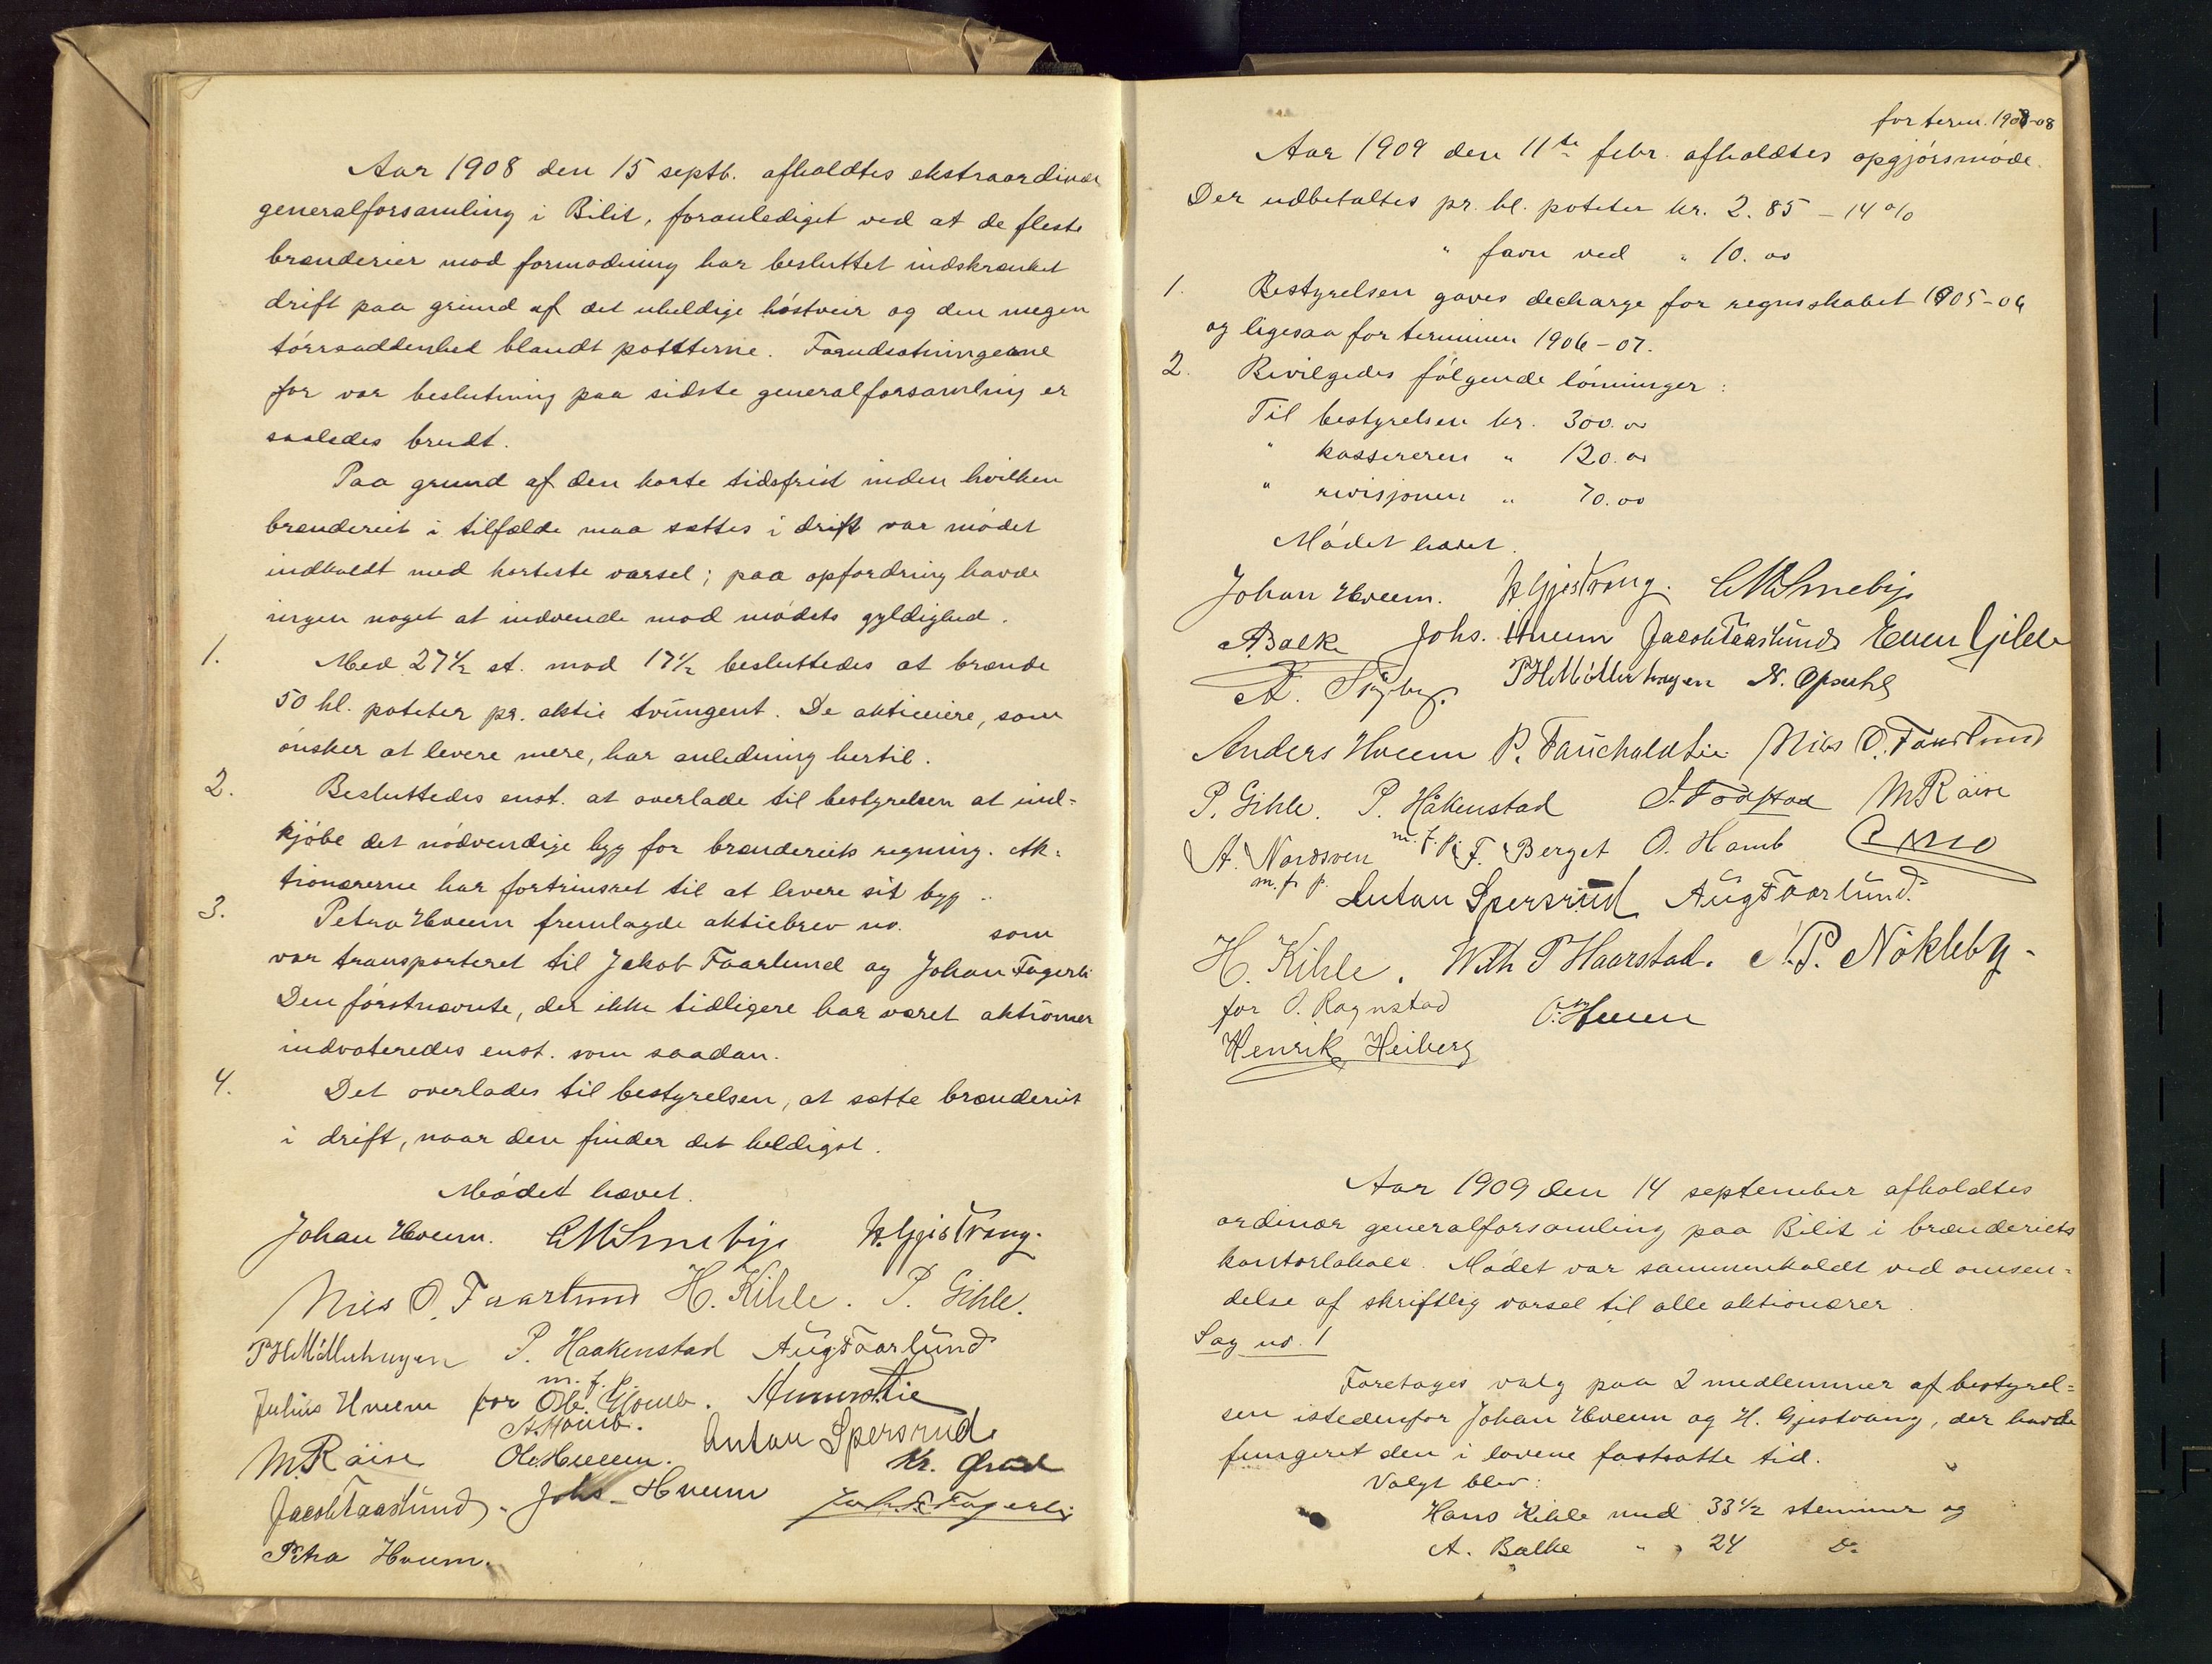 Aar 1908 den 15 septb. afholdtes ekstraordinær
generalforsamling i Bilit, foranlediget ved at de fleste
brænderier mod formodning har besluttet indskrænket
drift paa grund af det uheldige höstveir og den megen
törraaddenhed blandt potterne. Forudsætningerne
for vor beslutning paa sidste generalforsamling er
saaledes brudt.
Paa grund af den korte tidsfrist inden hvilken
brænderiet i tilfælde maa sættes i drift var mödet
indkaldt med korteste varsel; paa opfordring havde
ingen noget at indvende mod mödets gyldighed.
1. Med 27½ st. mod 17½ besluttedes at brænde
50 hl. poteter pr. aktie tvungent. De aktieeiere, som
önsker at levere mere, har anledning hertil.
2. Besluttedes enst. at overlade til bestyrelsen at ind-
kjöbe det nödvendige byg for brænderiets regning. Ak-
tionærerne har fortrinsret til at levere sit byg.
3. Petra Hveem fremlagde aktiebrev no. som
var transporteret til Jakob Faarlund og Johan Fagerli
Den förstnævnte, der ikke tidligere har været aktionær
indvoteredes enst. som saadan.
4. Det overlades til bestyrelsen, at sætte brænderiet
i drift, naar den finder det heldigst.
Mödet hævet.
Johan Hveem. C M Smebye H. Gjestvang.
Nils O. Faarlund H. Kihle. P. Gihle.
P H Möllerhagen P. Haakenstad Aug Faarlund
m. f. p.
Julius Hveem for Ole Homb.
A. Homb.
M. Röise Ole Hveem. Anton Spersrud
Kr.
Jacob Faarlund. Johs. Hveem Joh. Fagerli
Petra Hveem.
for term. 1907-08
Aar 1909 den 11te febr. afholdtes opgjörsmöde.
Der udbetaltes pr. hl. poteter kr. 2.85 – 14%
" favn ved " 10.00
1. Bestyrelsen gaves decharge for regnskabet 1905-06
og ligesaa for terminen 1906-07.
2. Bevilgedes fölgende lönninger:
Til bestyrelsen kr. 300.00
" kassereren " 120.00
" revisjonen " 70.00
Mödet hævet.
Johan Hveem. H. Gjestvang. C M Smebye
A Balke Johs. Hveem Jacob Faarlund Even Gihle
A. P H Möllerhagen N. Opsahl
Anders Hveem P. Fauchaldlie Nils O. Faarlund
P. Gihle. P. Håkenstad M Röise
A. Nordsven m. f. p. F. Berget O. Homb
m. f. p.
Anton Spersrud Aug Faarlund.
H. Kihle. Wilh P Haarstad. N. P. Nökleby
for O. Rognstad O. Hveem
Henrik Heiberg
Aar 1909 den 14 september afholdtes
ordinær generalforsamling paa Bilit i brænderiets
kontorlokale. Mödet var sammenkaldt ved omsen-
delse af skriftlig varsel til alle aktionærer.
Sag no. 1
Foretoges valg paa 2 medlemmer af bestyrel-
sen istedenfor Johan Hveem og H. Gjestvang, der havde
fungeret den i lovene fastsatte tid.
Valgt blev:
Hans Kihle med 33½ stemmer og
A. Balke " " 24 Do